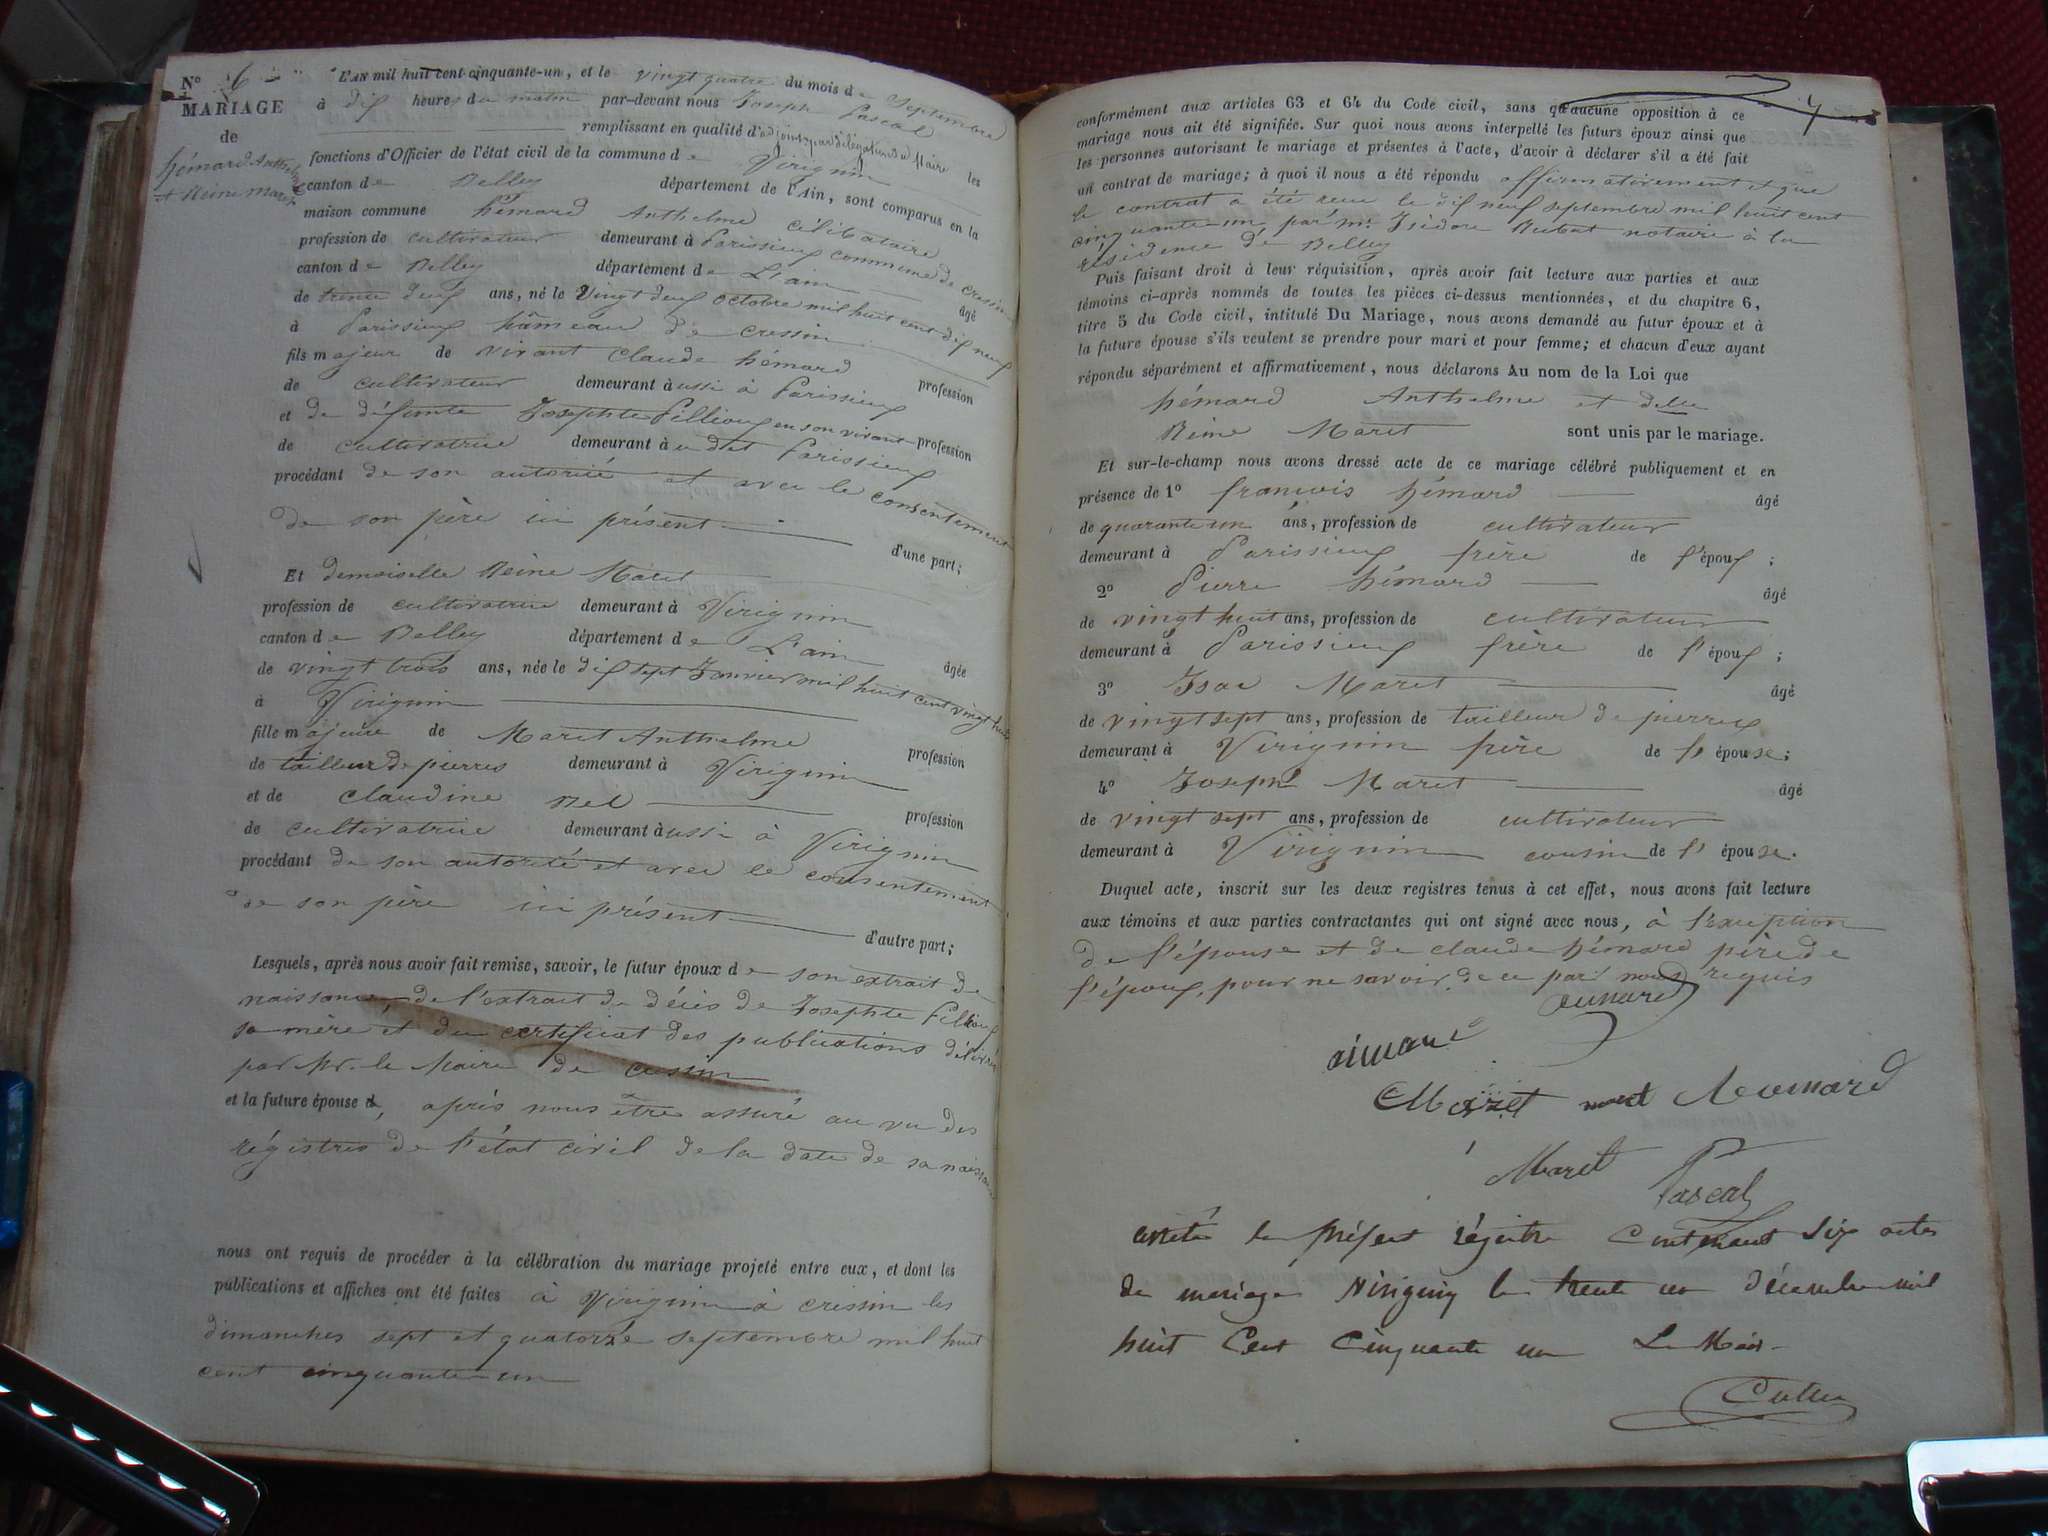 N° 6
MARIAGE
de
hémard Anthelme
et Reine Maret
L'AN mil huit cent cinquante-un, et le vingt quatre du mois de Septembre
à dix heures du matin par-devant nous Joseph Pascal
remplissant en qualité d'adjoint par délégation du Maire les
fonctions d'Officier de l'état civil de la commune de Virignin
canton de Belley département de l'Ain, sont comparus en la
maison commune hémard Anthelme célibataire
profession de cultivateur demeurant à Parissieux commune de cressin
canton de Belley département de L'ain âgé
de trente deux ans, né le vingt deux octobre mil huit cent dix neuf
à Parissieux hâmeau de cressin
fils majeur de vivant claude hémard profession
de cultivateur demeurant à ussi à Parissieux
et de défunte Josephte Fillioux en son vivant profession
de cultivatrice demeurant à udit Parissieux
procédant de son autorité et avec le consentement
de son père ici présent d'une part;
Et demoiselle Reine Maret
profession de cultivatrice demeurant à Virignin
canton de Belley département de L'ain âgée
de vingt trois ans, née le dix sept Janvier mil huit cent vingt huit
à Virignin
fille majeure de Maret Anthelme profession
de tailleur de pierres demeurant à Virignin
et de claudine Bel profession
de cultivatrice demeurant àussi à Virignin
procédant de son autorité et avec le consentement
de son père ici présent d'autre part;
Lesquels, après nous avoir fait remise, savoir, le futur époux de son extrait de
naissance, de l'extrait de décès de Josephte Fillioux
sa mère et du certificat des publications délivré
par Mr. le Maire de cressin
et la future épouse d, après nous être assuré au vu des
régistres de l'état civil de la date de sa naissance
nous ont requis de procéder à la célébration du mariage projeté entre eux, et dont les
publications et affiches ont été faites à Virignin à cressin les
dimanches sept et quatorze septembre mil huit
cent cinquante un
conformément aux articles 63 et 64 du Code civil, sans qu'aucune opposition à ce
mariage nous ait été signifiée. Sur quoi nous avons interpellé les futurs époux ainsi que
les personnes autorisant le mariage et présentes à l'acte, d'avoir à déclarer s'il a été fait
un contrat de mariage; à quoi il nous a été répondu affirmativement et que
le contrat a été recu le dix neuf septembre mil huit cent
cinquante un, par mr. Isidore Rubat notaire à la
résidence de Belley
Puis faisant droit à leur réquisition, après avoir fait lecture aux parties et aux
témoins ci-après nommés de toutes les pièces ci-dessus mentionnées, et du chapitre 6,
titre 5 du Code civil, intitulé Du Mariage, nous avons demandé au futur époux et à
la future épouse s'ils veulent se prendre pour mari et pour femme; et chacun d'eux ayant
répondu séparément et affirmativement, nous déclarons Au nom de la Loi que
hémard Anthelme et delle
Reine Maret sont unis par le mariage.
Et sur-le-champ nous avons dressé acte de ce mariage célébré publiquement et en
présence de 1° francois hémard âgé
de quarante un ans, profession de cultivateur
demeurant à Parissieux frère de l'époux;
2° Pierre hémard âgé
de vingt huit ans, profession de cultivateur
demeurant à Parissieux frère de l'époux;
3° Isac Maret âgé
de vingt sept ans, profession de tailleur de pierres
demeurant à Virignin frère de l'épouse;
4° Joseph Maret âgé
de vingt sept ans, profession de cultivateur
demeurant à Virignin cousin de l'épouse.
Duquel acte, inscrit sur les deux registres tenus à cet effet, nous avons fait lecture
aux témoins et aux parties contractantes qui ont signé avec nous, à l'exception
de l'épouse et de claude hémard père de
l'époux, pour ne savoir, de ce par nous requis
Maret
Maret Pascal
arrêté le présent régistre Contenant Six actes
de mariage Virignin le trente un décembre mil
huit Cent Cinquante un Le Maire